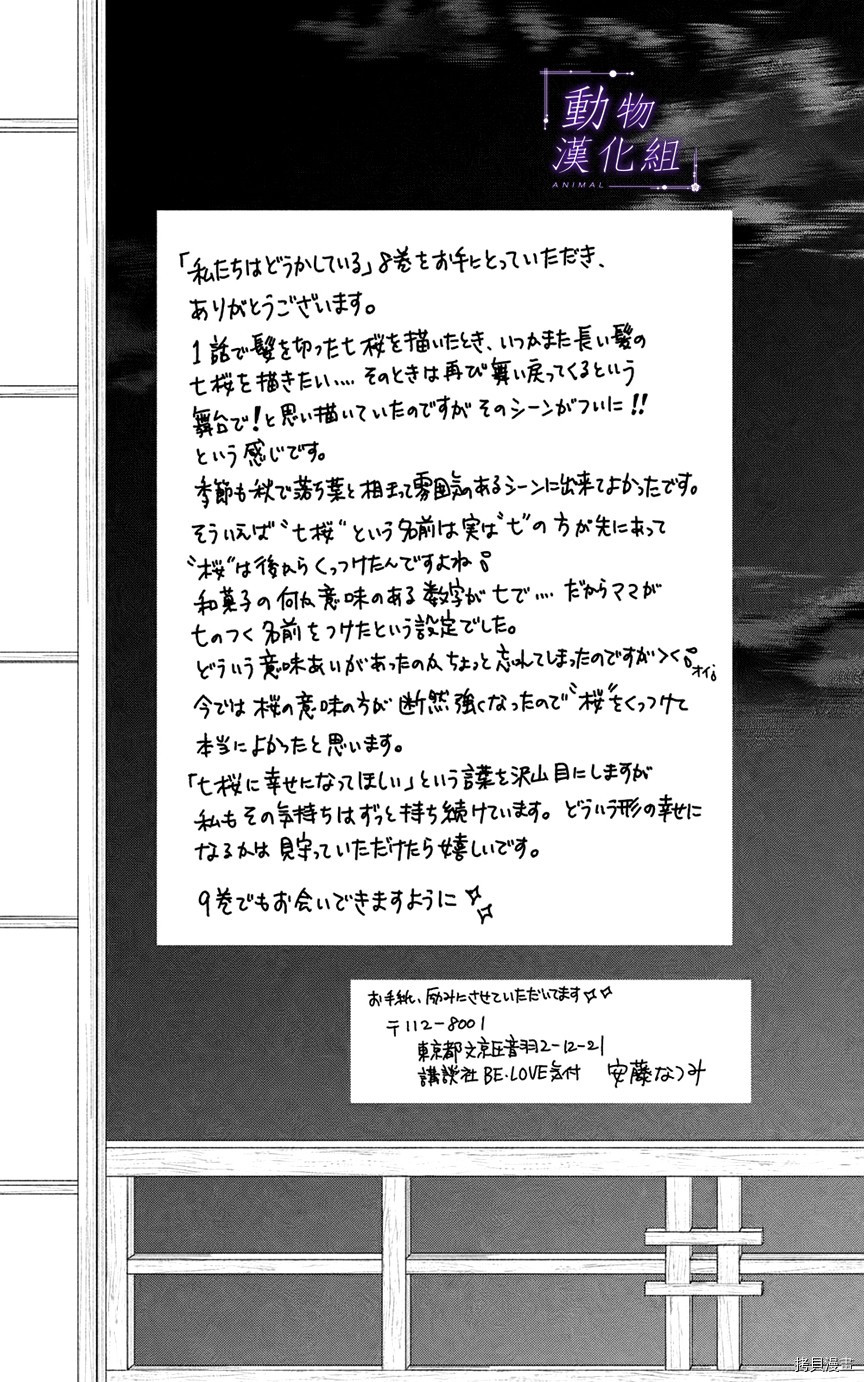 動物
漢化組
ANIMAL
「私たちはどうかしている」8巻をお手にとっていただき、
ありがとうございます。
1話で髪を切った七桜を描いたとき、いつかまた長い髪の
七桜を描きたい…. そのときは再び舞い戻ってくるという
舞台で!と思い描いていたのですがそのシーンがついに!!
という感じです。
季節も秋で落ち葉と相まって雰囲気のあるシーンに出来てよかったです。
そういえば〝七桜〟という名前は実は〝七〟の方が先にあって
〝桜〟は後からくっつけたんですよね
和菓子の何か意味のある数字が七で…. だからママが
七のつく名前をつけたという設定でした。
どういう意味あいがあったのかちょっと忘れてしまったのですが><
オイ
今では桜の意味の方が断然強くなったので〝桜〟をくっつけて
本当によかったと思います。
「七桜に幸せになってほしい」という言葉を沢山目にしますが
私もその気持ちはずっと持ち続けています。どういう形の幸せに
なるかは見守っていただけたら嬉しいです。
9巻でもお会いできますように
お手紙、励みにさせていただいてます
〒112-8001
東京都文京区音羽2-12-21
講談社 BE・LOVE気付 安藤なつみ
拷貝漫畫